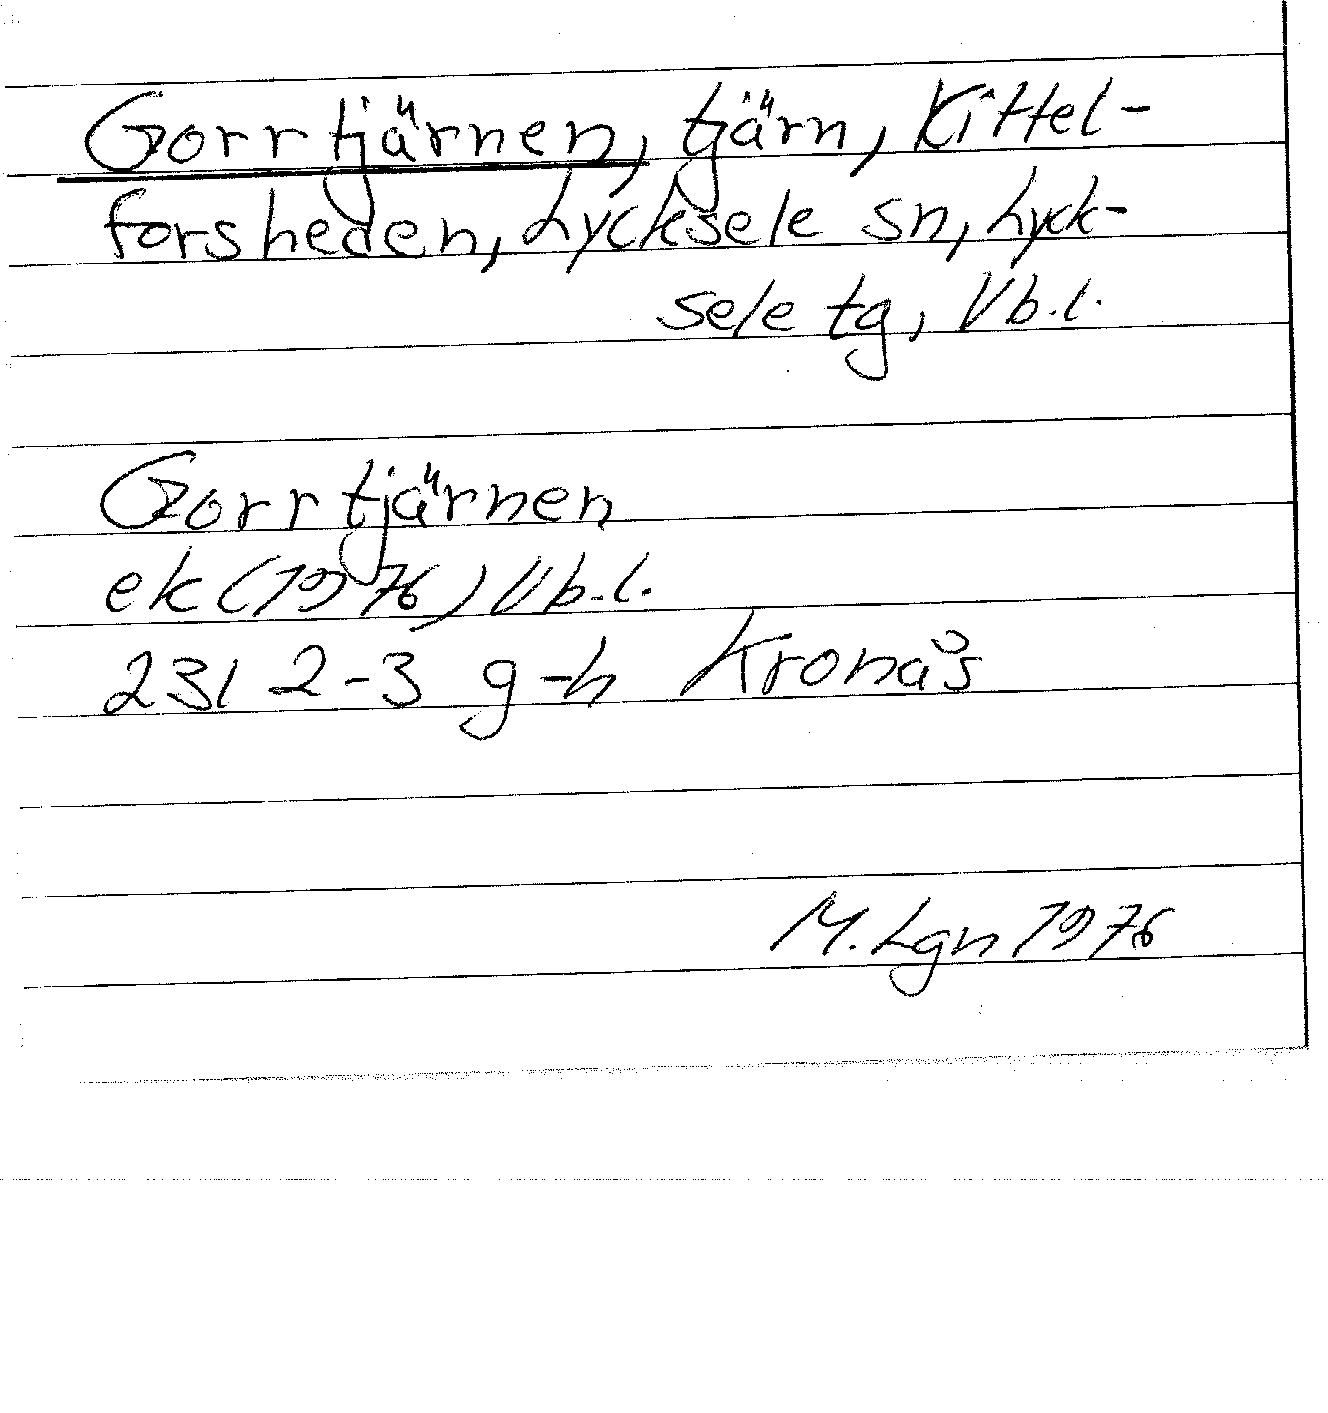 Gorrtjärnen, tjärn, Kittel-
forsheden, Lycksele sn, Lyck-
sele tg, Vb.l.
Gorrtjärnen
ek (1976) Vb.l.
23I 2-3 g-h Kronås
M. Lgn 1976